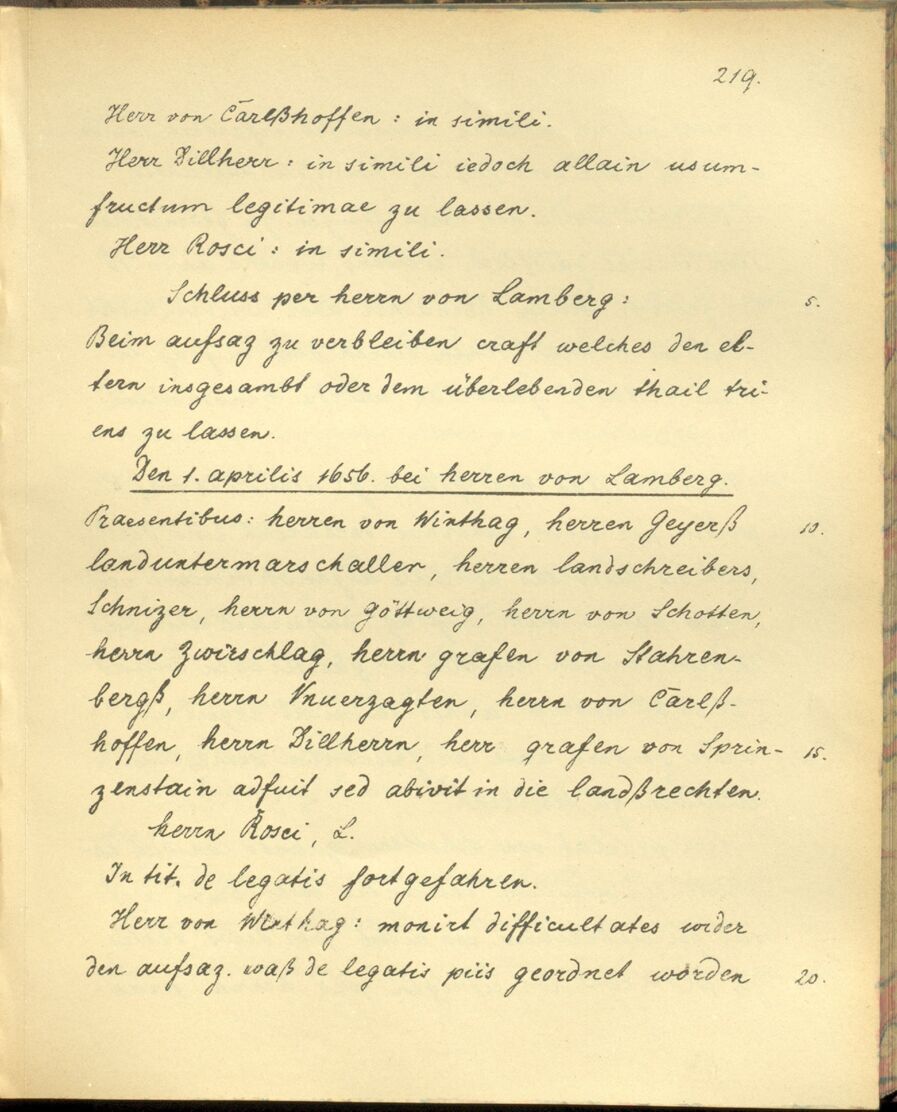 219.
Herr von Carlßhoffen : in simili.
Herr Dillherr : in simili iedoch allain usum-
fructum legitimae zu lassen.
Herr Rosci : in simili.
Schluss per herrn von Lamberg : 5.
Beim aufsaz zu verbleiben craft welches den el-
tern insgesambt oder dem überlebenden thail tri-
ens zu lassen.
Den 1. aprilis 1656. bei herren von Lamberg.
Praesentibus : herren von Winthag, herren Geyerß 10.
landuntermarschallen, herren landschreibers,
Schnizer, herrn von Göttweig, herrn von Schotten,
herrn Zwirschlag, herrn grafen von Stahren-
bergß, herrn Vnuerzagten, herrn von Carlß-
hoffen, herrn Dillherrn, herr grafen von Sprin- 15.
zenstain adfuit sed abivit in die landßrechten.
herrn Rosci, L.
In tit. de legatis fortgefahren.
Herr von Winthag : monirt difficultates wider
den aufsaz. waß de legatis piis geordnet worden 20.